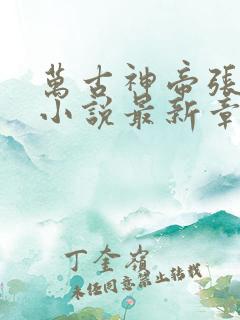 萬古神帝張
小說最新章
丁奎嶺
未經同意禁止轉載